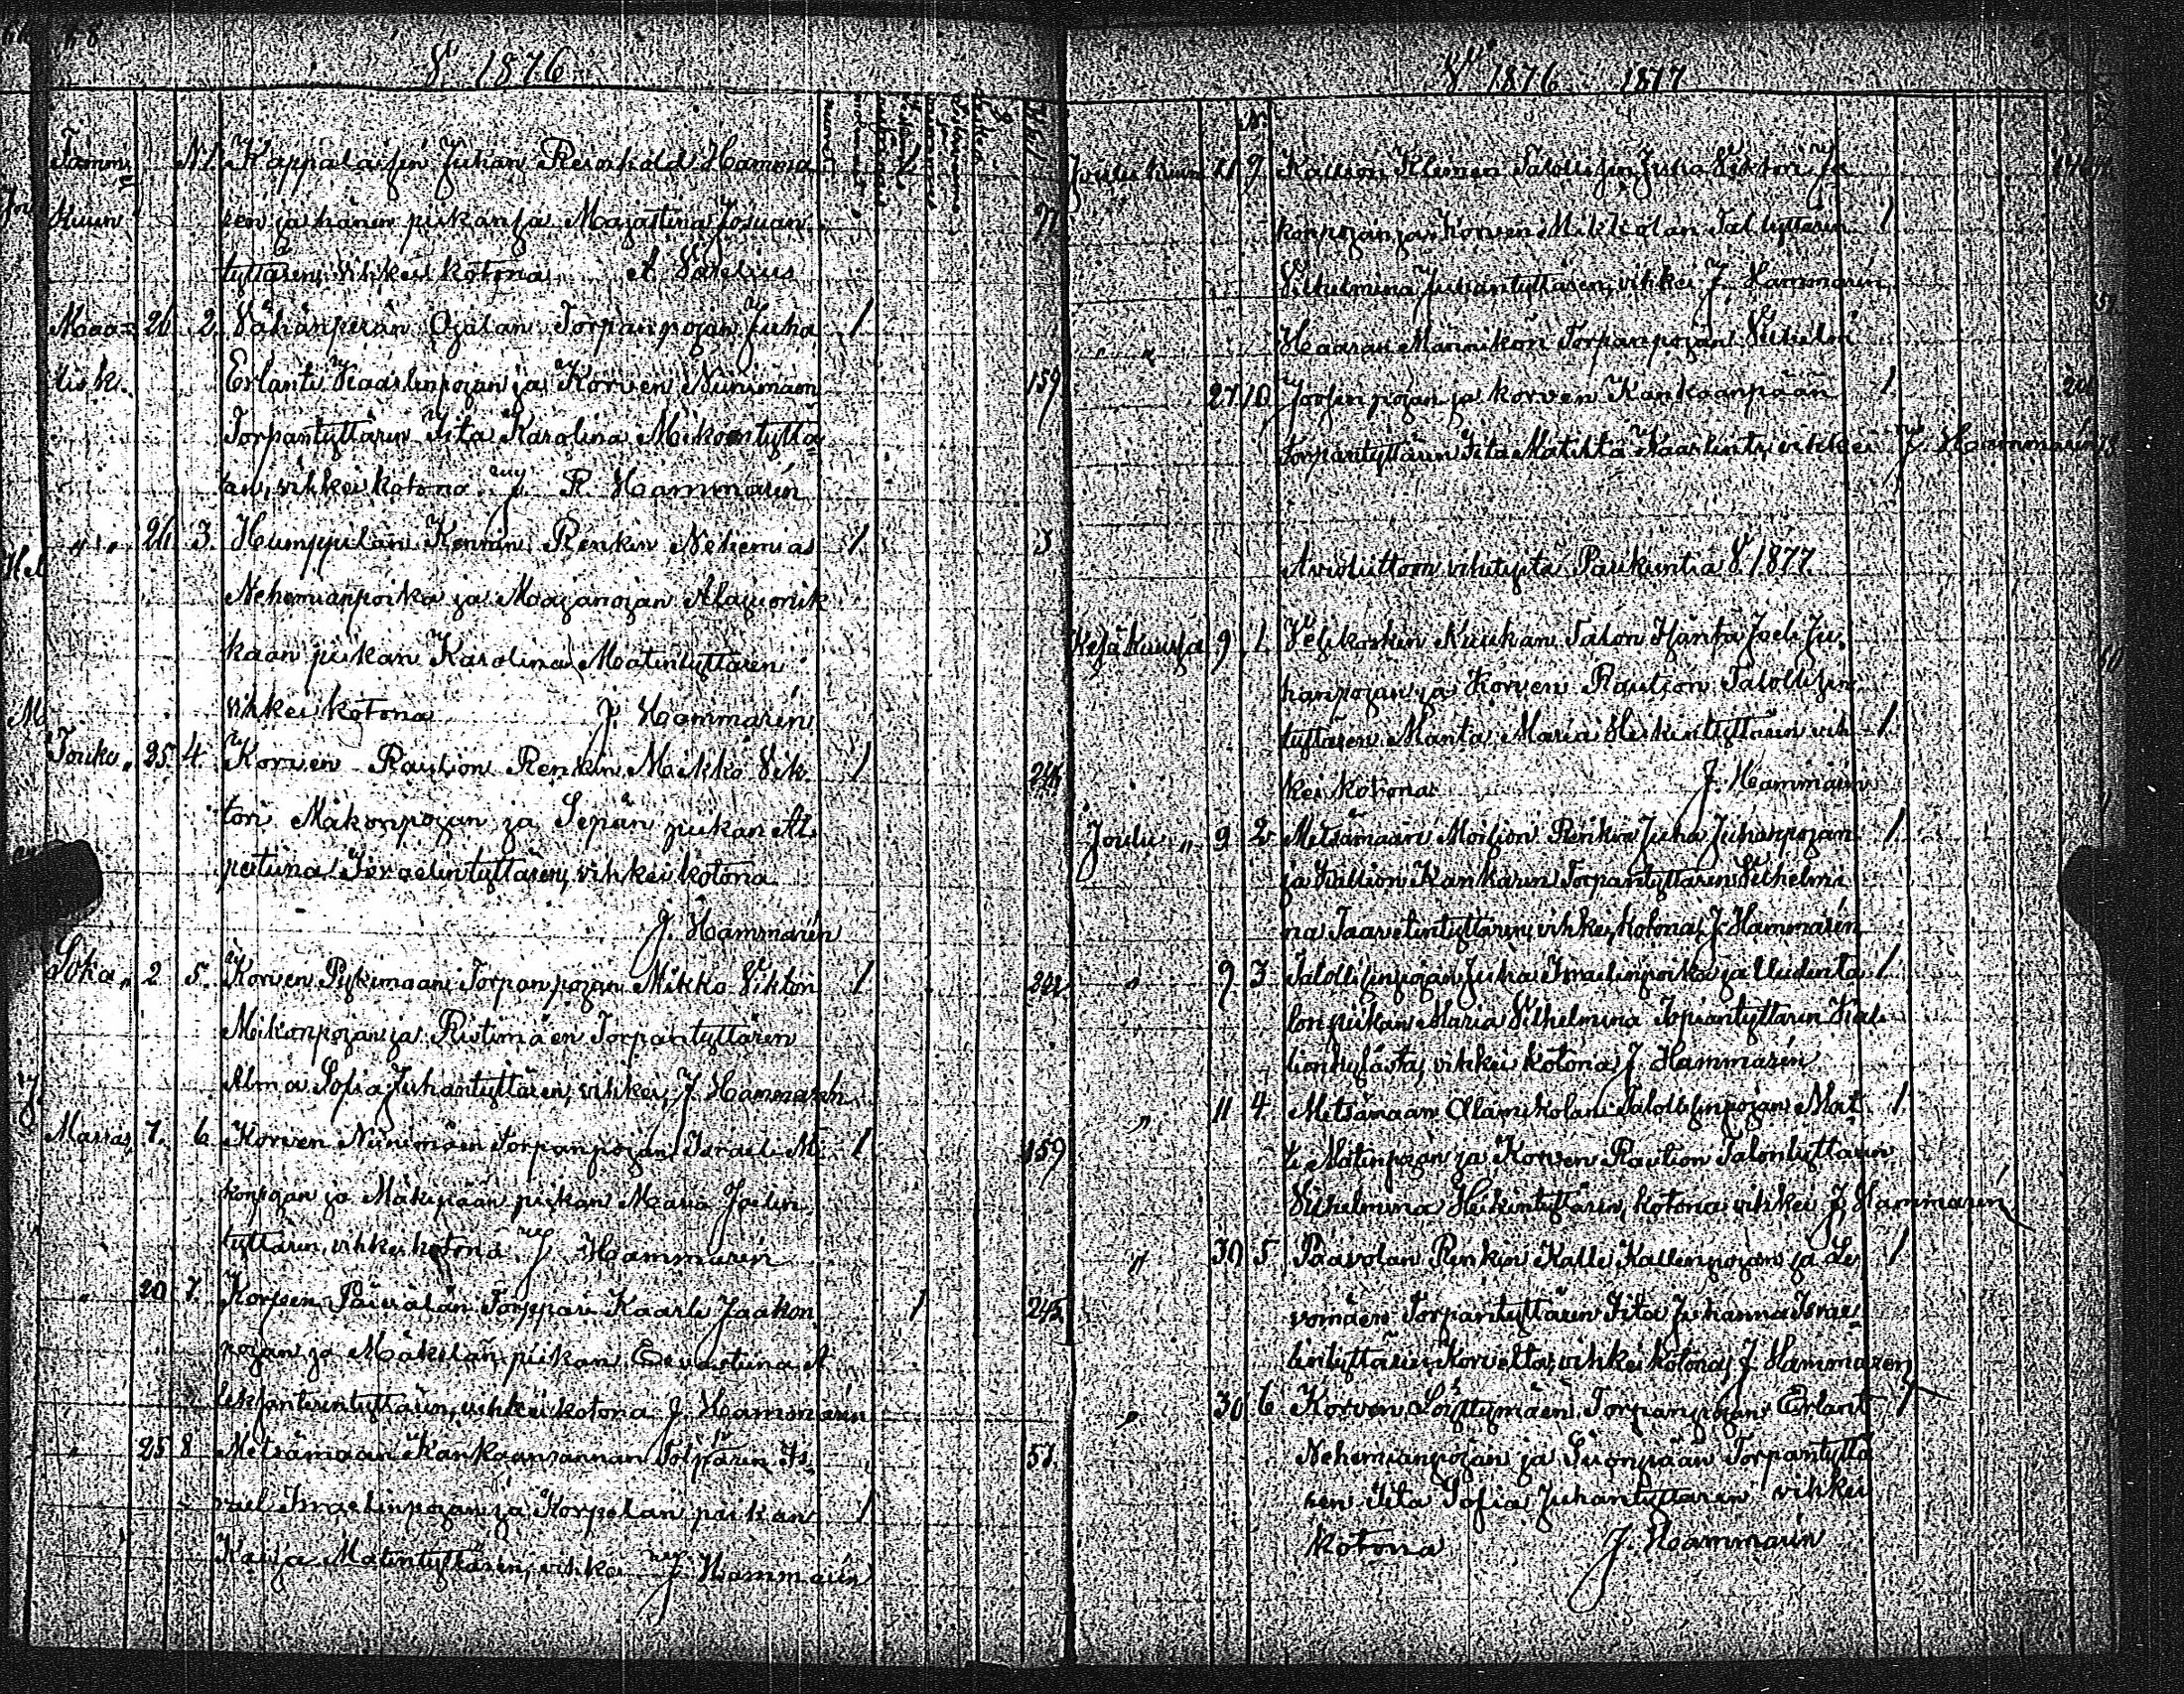 V 1876
Tammi N:1 Kappalaisen Juhan Reinhold Hamma
kuun ren ja hänen piikansa Majastina Josuan 77
tyttären, vihkei kotona A Varelius
Maaa= 26 2. Vähänperän Ojalan Torpanpojan Juha 1
lisk. Erlanti Kaarlenpojan ja Korven Niinimäen 159
Torpantyttären Iita Karolina Mikontyttä
ren, vihkei kotona J. R. Hammarén
" " 26 3. Humppilan Kennin Renkin Nehemias 1 3
Nehemianpoika ja Maajanojan
kaan piikan Karolina Matintyttären
vihkei kotona J. Hammarén
Touko " 25. 4. Korven Raution Renkin Mikko Vik 1 246
tori Mäkonpojan ja Sepän piikan Al
pertiina Israelintyttären, vihkei kotona
J. Hammarén
Loka " 2 5. Korven Pykimaan Torpanpojan Mikko Viktori 1 242
Mikonpojan ja Ristimäen Torpantyttären
Alma Sofia Juhantyttären, vihkei, J. Hammarén
Marras 7. 6. Korven Niinimäen Torpanpojan Israeli Mi 1 159
konpojan ja Mäkipään piikan Maria Joelin
tyttären, vihkei kotona J Hammarén
" 20 7. Korven Päivälän Torppari Kaarle Jaakon 1 245
pojan ja Mäkelän piikan Eevastiina A
leksanterintyttären, vihkei kotona J. Hammarén
" 25 8 Metsämaan Kankaanrannan Torparin Is 57.
rael Israelinpojan ja Korpelan piikan 1
Kaisa Matintyttären, vihkei J. Hammarén
V 1876 1877
N:
Joulu kuun 11 9 Kallion Klemen Talollisen Juha Viktori Ja
konpojan ja Korven Mikkolan Tal. tyttären 1
Vilhelmina Juhantyttären, vihkei J. Hammarén
" " Haaran Männikön Torpanpojan Vilhelmi
27 10 Joosenpojan ja Korven Kankaanpään 1
Torpantyttären Iita Matilta Kaarlint. vihkei J. Hammarén
Avioliittoon vihityitä Pariskuntia V. 1877.
Kesäkuusa 9 1. Veljkosken Kuukan Talon Isäntä Joeli Ju.
hanpojan ja Korven Raution Talollisen
tyttären Manta Maria Heikintyttären vih- 1.
kei kotona J. Hammarén
Joulu " 9 2. Metsämaan Moision Renkin Juha Juhanpojan 1
ja Kallion Kankaren Torpantyttären Vilhelmi
na Taavetintyttären, vihkei kotona J. Hammarén
" 9 3 Talollisenpojan Juha Israelinpoika ja Uudenta 1
lon piikan Maria Vilhelmina Topiantyttären Kal
lionkylästä, vihkei kotona J. Hammarén
" 11 4. Metsämaan Alamikolan Talollisenpojan Mat 1.
ti Matinpojan ja Korven Raution Talontyttären
Vilhelmina Heikintyttären, kotona vihkei J. Hammarén
" 30 5 Paavolan Renkin Kalle Kallenpojan ja Le 1
vomäen Torpantyttären Iita Juhanna Israe
lintyttären Korvelta, vihkei kotona J. Hammaren
" 30 6 Korven Löyttymäen Torpanpojan Erlant 1
Nehemianpojan ja Suonpään Torpantyttä
ren Iita Sofia Juhantyttären vihkei
kotona J. Hammarén